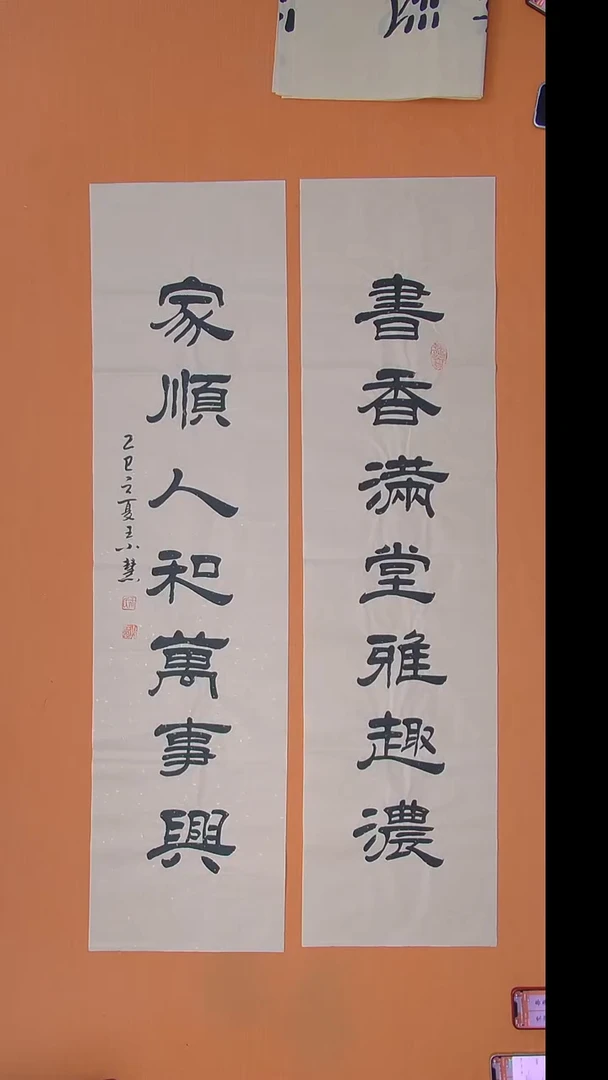 書香滿堂雅趣濃
家順人和萬事興
乙巳立夏王小慧